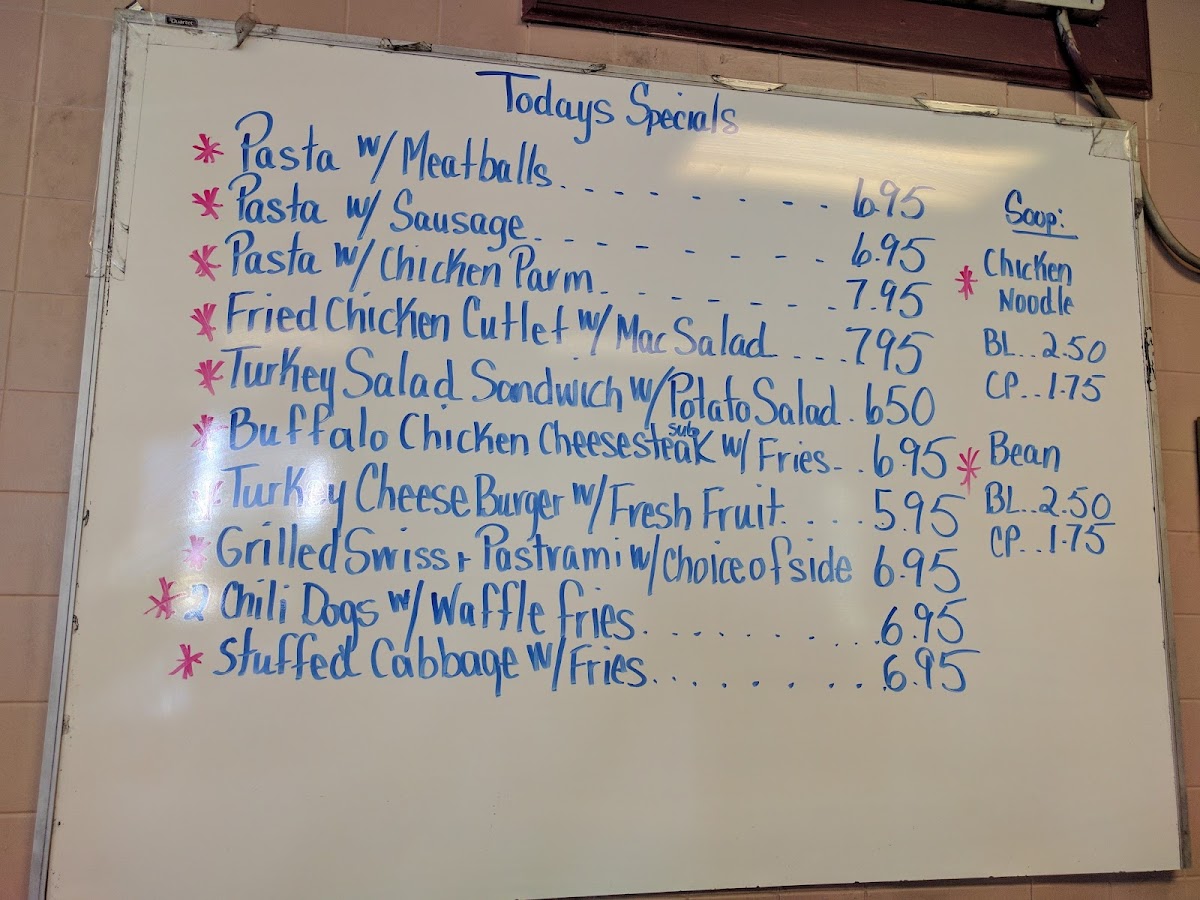 Quartet
Todays Specials
* Pasta w/ Meatballs. - - - - - - - - 6.95
* Pasta w/ Sausage. - - - - - - - - 6.95
* Pasta w/ Chicken Parm. - - - - - - - . 7.95
* Fried Chicken Cutlet w/ Mac Salad . . . . 795
* Turkey Salad Sandwich w/ Potato Salad . 650
* Buffalo Chicken Cheesesteak sub w/ Fries - . . 6.95
* Turkey Cheese Burger w/ Fresh Fruit. . . . . 5.95
* Grilled Swiss + Pastrami w/ Choice of side 6.95
* 2 Chili Dogs w/ Waffle fries. . . . . . . . . . 6.95
* Stuffed Cabbage w/ Fries. . . . . . . . . . 6.95
Soop:
* Chicken
Noodle
BL . . 2.50
CP . . 1.75
* Bean
BL . . . 2.50
CP . . . 1.75